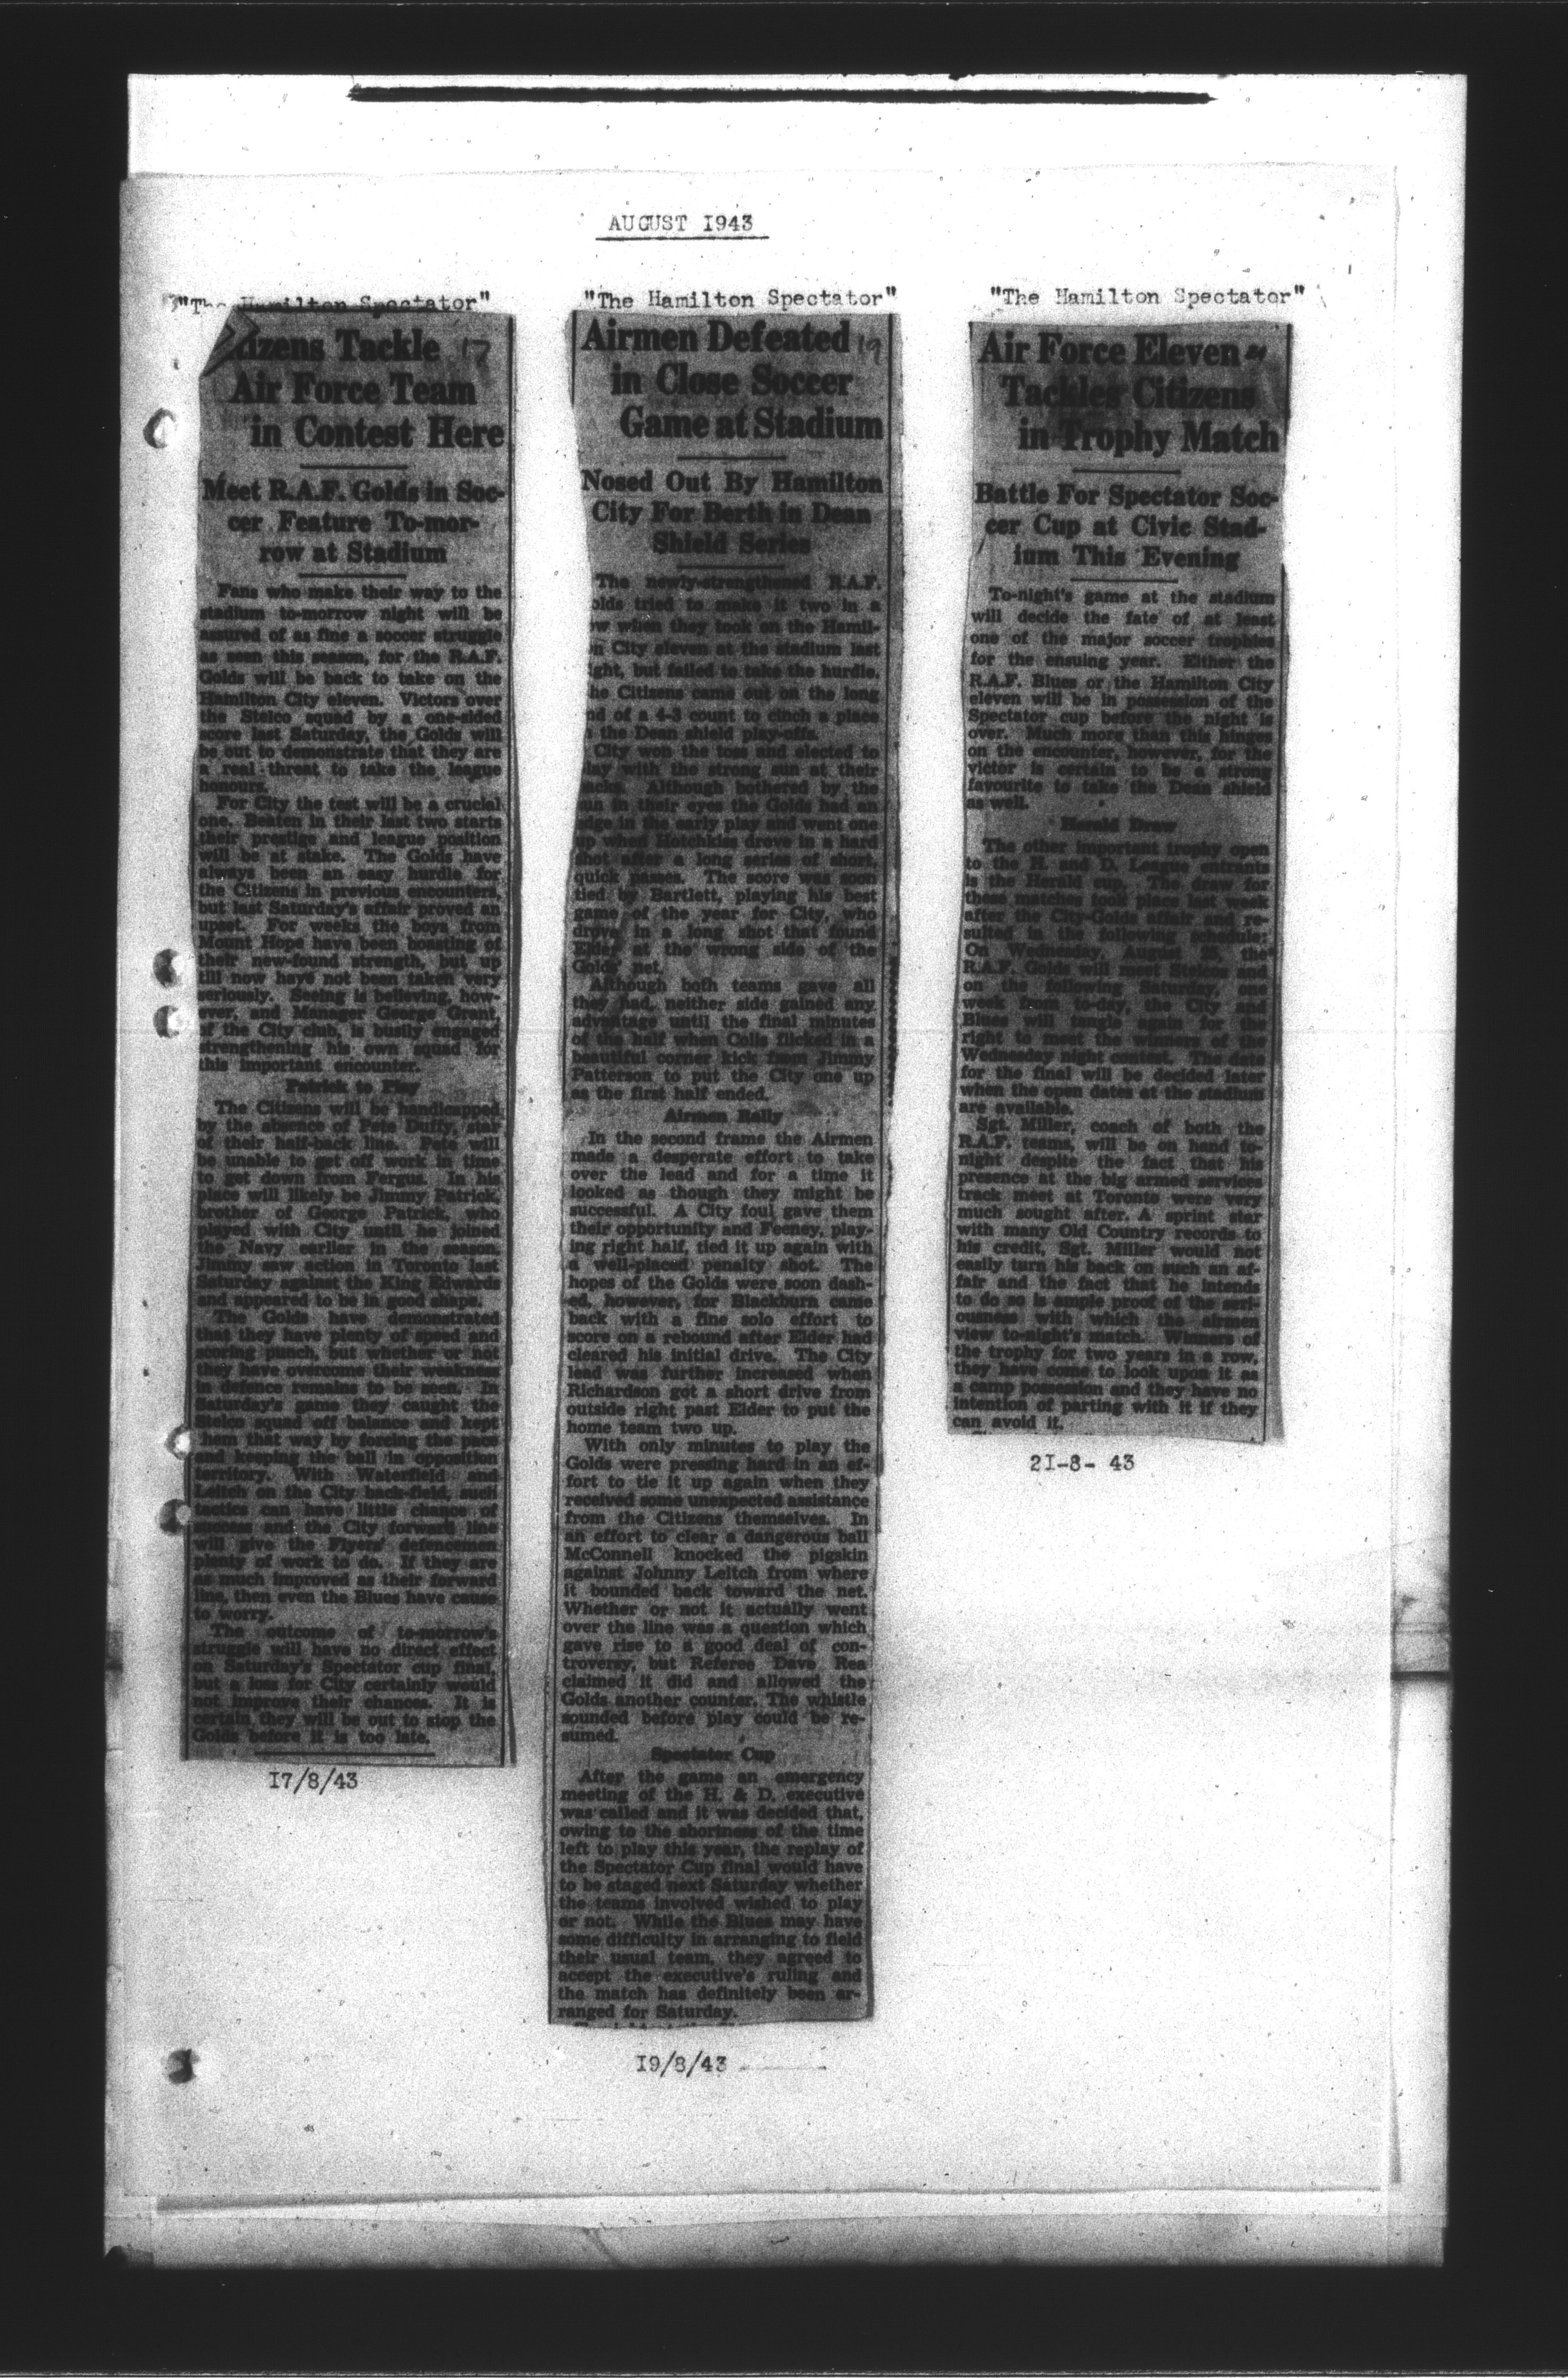 AUGUST 1943
"The Hamilton Spectator"
izens Tackle 17
Air Force Team
in Contest Here
Meet R.A.F. Golds in Soc-
cer Feature To-mor-
row at Stadium
Fans who make their way to the
stadium to-morrow night will be
assured of as fine a soccer struggle
as seen this season, for the R.A.F.
Golds will be back to take on the
Hamilton City eleven. Victors over
the Stelco squad by a one-sided
score last Saturday, the Golds will
be out to demonstrate that they are
a real threat to take the league
honours.
For City the test will be a crucial
one. Beaten in their last two starts
their prestige and league position
will be at stake. The Golds have
always been an easy hurdle for
the Citizens in previous encounters,
but last Saturday's affair proved an
upset. For weeks the boys from
Mount Hope have been boasting of
their new-found strength, but up
till now have not been taken very
seriously. Seeing is believing, how-
ever, and Manager George Grant,
of the City club, is busily engaged
strengthening his own squad for
this important encounter.
Patrick to Play
The Citizens will be handicapped
by the absence of Pete Duffy, star
of their half-back line. Pete will
be unable to get off work in time
to get down from Fergus. In his
place will likely be Jimmy Patrick,
brother of George Patrick, who
played with City until he joined
the Navy earlier in the season.
Jimmy saw action in Toronto last
Saturday against the King Edwards
and appeared to be in good shape.
The Golds have demonstrated
that they have plenty of speed and
scoring punch, but whether or not
they have overcome their weakness
in defence remains to be seen. In
Saturday's game they caught the
Stelco squad off balance and kept
them that way by forcing the pace
and keeping the ball in opposition
territory. With Waterfield and
Leitch on the City back-field, such
tactics can have little chance of
success and the City forward line
will give the Flyers' defencemen
plenty of work to do. If they are
as much improved as their forward
line, then even the Blues have cause
to worry.
The outcome of to-morrow's
struggle will have no direct effect
on Saturday's Spectator cup final,
but a loss for City certainly would
not improve their chances. It is
certain they will be out to stop the
Golds before it is too late.
17/8/43
"The Hamilton Spectator"
Airmen Defeated 19
in Close Soccer
Game at Stadium
Nosed Out By Hamilton
City For Berth in Dean
Shield Series
The newly-strengthened R.A.F.
olds tried to make it two in a
ow when they took on the Hamil-
n City eleven at the stadium last
ight, but failed to take the hurdle.
he Citizens came out on the long
nd of a 4-3 count to cinch a place
the Dean shield play-offs.
City won the toss and elected to
lay with the strong sun at their
acks. Although bothered by the
un in their eyes the Golds had an
edge in the early play and went one
up when Hotchkiss drove in a hard
shot after a long series of short,
quick passes. The score was soon
tied by Bartlett, playing his best
game of the year for City, who
drove in a long shot that found
Elder at the wrong side of the
Golds' net.
Although both teams gave all
they had, neither side gained any
advantage until the final minutes
of the half when Coils flicked in a
beautiful corner kick from Jimmy
Patterson to put the City one up
as the first half ended.
Airmen Rally
In the second frame the Airmen
made a desperate effort to take
over the lead and for a time it
looked as though they might be
successful. A City foul gave them
their opportunity and Feeney, play-
ing right half, tied it up again with
a well-placed penalty shot. The
hopes of the Golds were soon dash-
ed, however, for Blackburn came
back with a fine solo effort to
score on a rebound after Elder had
cleared his initial drive. The City
lead was further increased when
Richardson got a short drive from
outside right past Elder to put the
home team two up.
With only minutes to play the
Golds were pressing hard in an ef-
fort to tie it up again when they
received some unexpected assistance
from the Citizens themselves. In
an effort to clear a dangerous ball
McConnell knocked the pigskin
against Johnny Leitch from where
it bounded back toward the net.
Whether or not it actually went
over the line was a question which
gave rise to a good deal of con-
troversy, but Referee Dave Rea
claimed it did and allowed the
Golds another counter. The whistle
sounded before play could be re-
sumed.
Spectator Cup
After the game an emergency
meeting of the H. & D. executive
was called and it was decided that,
owing to the shortness of the time
left to play this year, the replay of
the Spectator Cup final would have
to be staged next Saturday whether
the teams involved wished to play
or not. While the Blues may have
some difficulty in arranging to field
their usual team, they agreed to
accept the executive's ruling and
the match has definitely been ar-
ranged for Saturday.
19/8/43
"The Hamilton Spectator"
Air Force Eleven
Tackles Citizens
in Trophy Match
Battle For Spectator Soc-
cer Cup at Civic Stad-
ium This Evening
To-night's game at the stadium
will decide the fate of at least
one of the major soccer trophies
for the ensuing year. Either the
R.A.F. Blues or the Hamilton City
eleven will be in possession of the
Spectator cup before the night is
over. Much more than this hinges
on the encounter, however, for the
victor is certain to be a strong
favourite to take the Dean shield
as well.
Herald Draw
The other important trophy open
to the H. and D. League entrants
is the Herald cup. The draw for
these matches took place last week
after the City-Golds affair and re-
sulted in the following schedule:
On Wednesday, August 25, the
R.A.F. Golds will meet Stelcos and
on the following Saturday, one
week from to-day, the City and
Blues will tangle again for the
right to meet the winners of the
Wednesday night contest. The date
for the final will be decided later
when the open dates at the stadium
are available.
Sgt. Miller, coach of both the
R.A.F. teams, will be on hand to-
night despite the fact that his
presence at the big armed services
track meet at Toronto were very
much sought after. A sprint star
with many Old Country records to
his credit, Sgt. Miller would not
easily turn his back on such an af-
fair and the fact that he intends
to do so is ample proof of the seri-
ousness with which the airmen
view to-night's match. Winners of
the trophy for two years in a row,
they have come to look upon it as
a camp possession and they have no
intention of parting with it if they
can avoid it.
21-8- 43